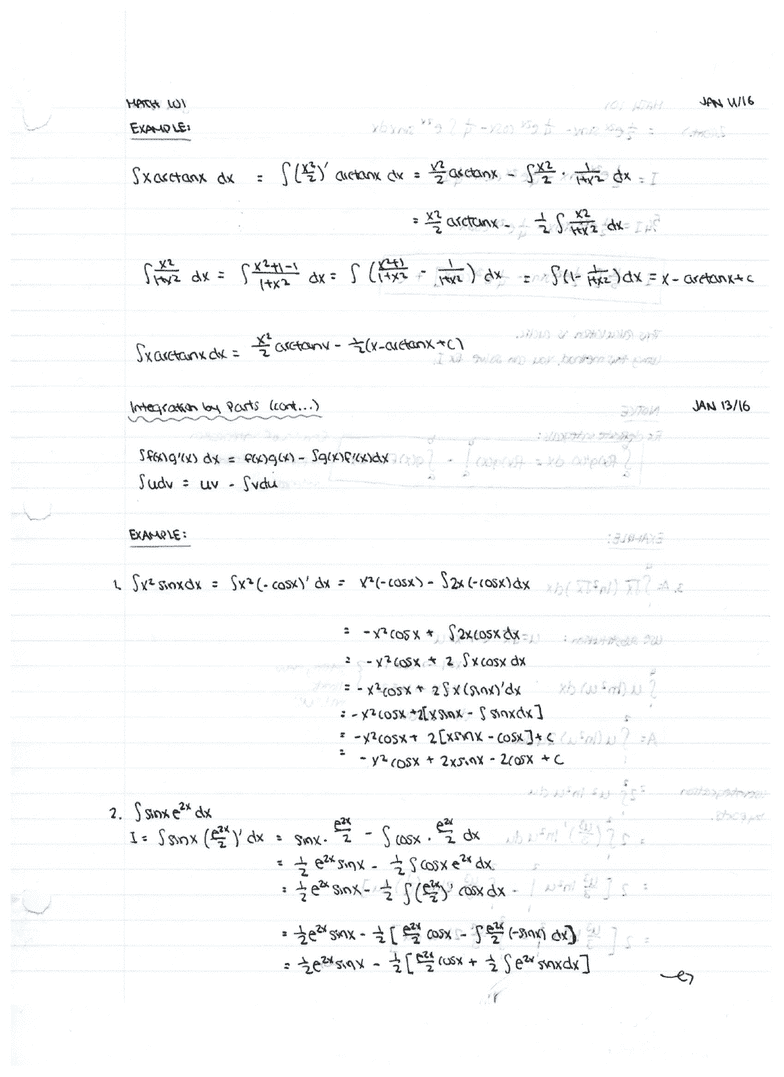 MATH 101 JAN 11/16
EXAMPLE:
∫x arctanx dx = ∫(x²/2)' arctanx dx = x²/2 arctanx - ∫x²/2 · 1/1+x² dx
= x²/2 arctanx - 1/2 ∫ x²/1+x² dx
∫x²/1+x² dx = ∫x²+1-1/1+x² dx = ∫(x²+1/1+x² - 1/1+x²) dx = ∫(1- 1/1+x²)dx = x - arctanx + c
∫x arctanx dx = x²/2 arctanx - 1/2(x-arctanx + c)
Integration by Parts (cont...) JAN 13/16
∫f(x)g'(x) dx = f(x)g(x) - ∫g(x)f'(x)dx
∫udv = uv - ∫vdu
EXAMPLE:
1. ∫x² sinxdx = ∫x²(-cosx)' dx = x²(-cosx) - ∫2x(-cosx)dx
= -x²cosx + ∫2xcosx dx
= -x²cosx + 2 ∫xcosx dx
= -x²cosx + 2∫x(sinx)'dx
= -x²cosx +2[xsinx - ∫ sinxdx]
= -x²cosx + 2[xsinx - cosx] + c
= -x²cosx + 2xsinx - 2cosx + c
2. ∫ sinx e²ˣ dx
I = ∫sinx (e²ˣ/2)' dx = sinx · e²ˣ/2 - ∫cosx · e²ˣ/2 dx
= 1/2 e²ˣ sinx - 1/2 ∫cosx e²ˣ dx
= 1/2 e²ˣ sinx - 1/2 ∫(e²ˣ/2)' cosx dx
= 1/2 e²ˣ sinx - 1/2 [e²ˣ/2 cosx - ∫e²ˣ/2 (-sinx) dx]
= 1/2 e²ˣ sinx - 1/2 [e²ˣ/2 cosx + 1/2 ∫e²ˣ sinxdx]